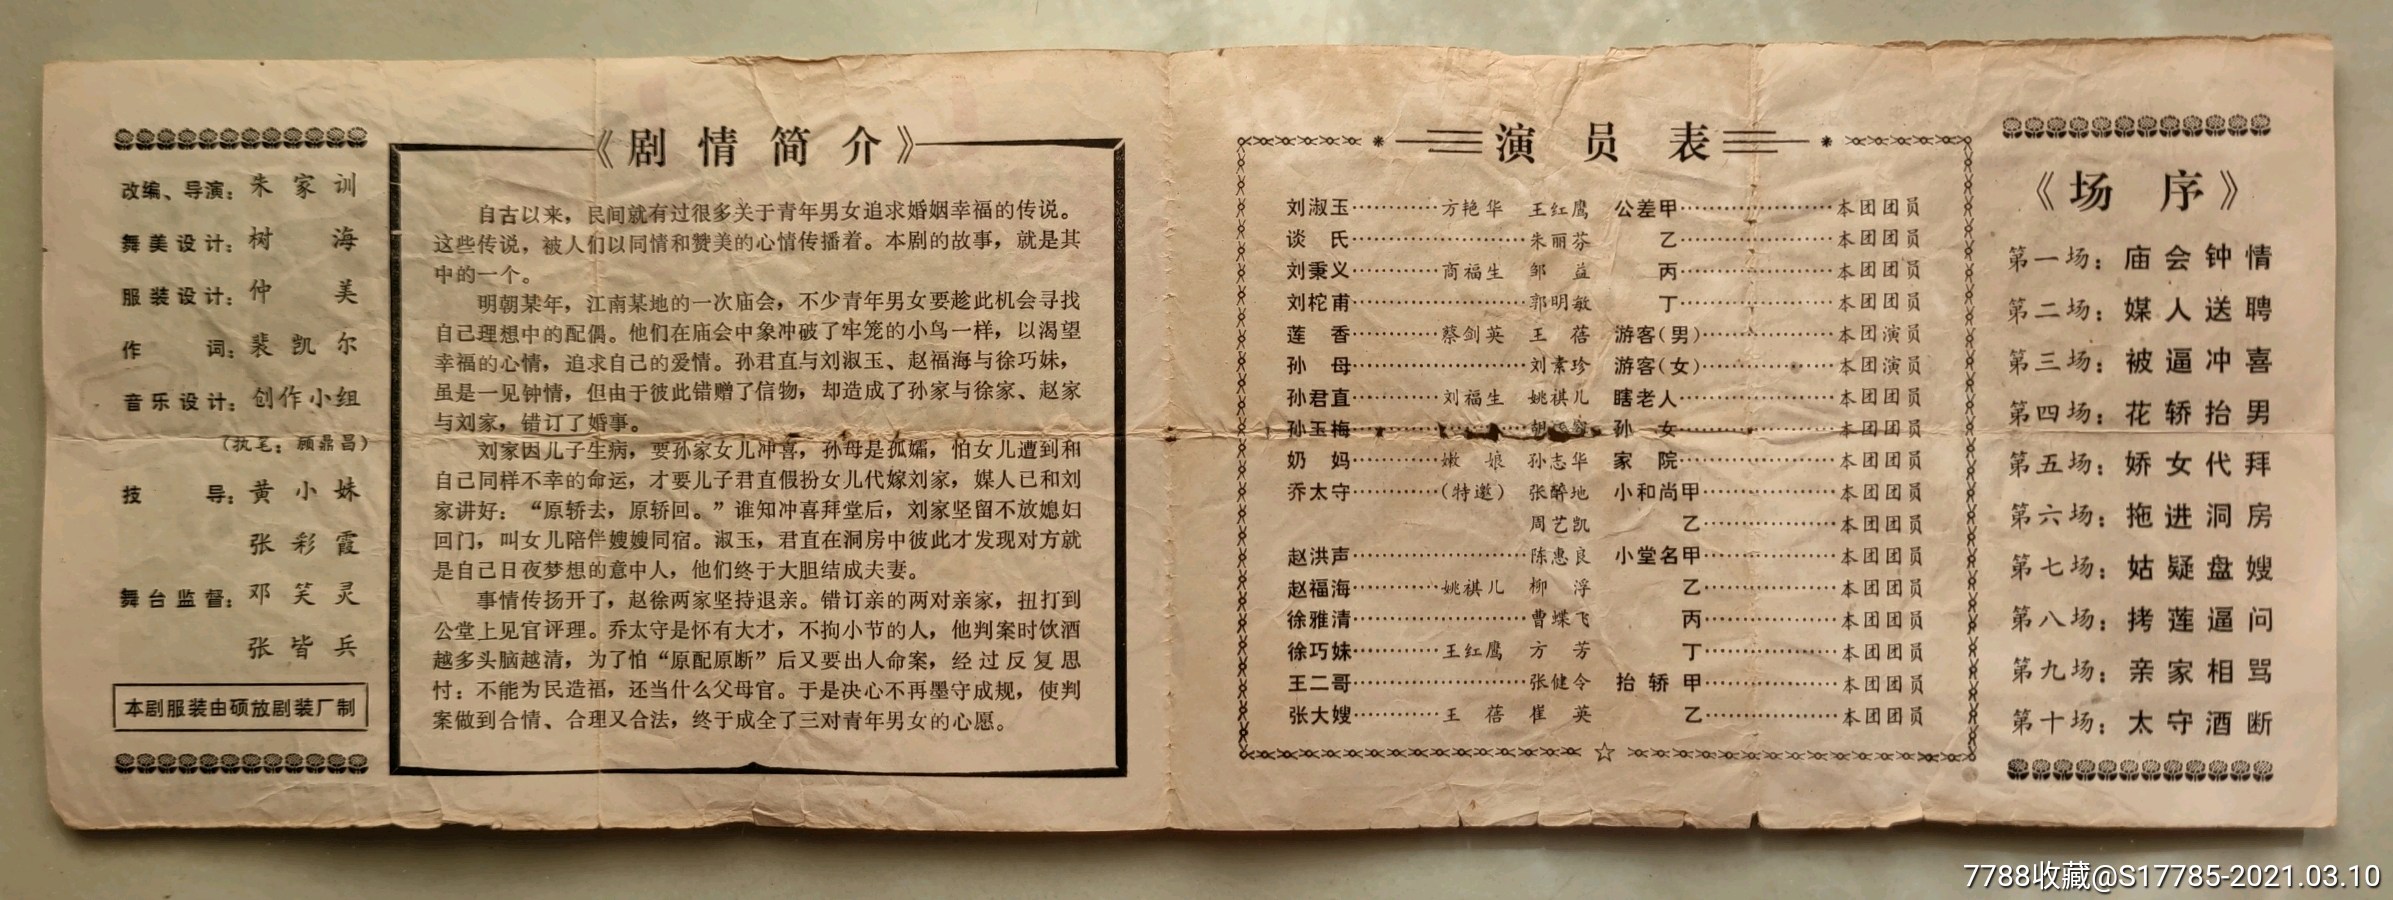 改编、导演：朱家训
舞美设计：树海
服装设计：仲美
作词：裴凯尔
音乐设计：创作小组
（执笔：顾鼎昌）
技导：黄小妹
张彩霞
舞台监督：邓笑灵
张皆兵
本剧服装由硕放剧装厂制
《剧情简介》
自古以来，民间就有过很多关于青年男女追求婚姻幸福的传说。
这些传说，被人们以同情和赞美的心情传播着。本剧的故事，就是其
中的一个。
明朝某年，江南某地的一次庙会，不少青年男女要趁此机会寻找
自己理想中的配偶。他们在庙会中象冲破了牢笼的小鸟一样，以渴望
幸福的心情，追求自己的爱情。孙君直与刘淑玉、赵福海与徐巧妹，
虽是一见钟情，但由于彼此错赠了信物，却造成了孙家与徐家、赵家
与刘家，错订了婚事。
刘家因儿子生病，要孙家女儿冲喜，孙母是孤孀，怕女儿遭到和
自己同样不幸的命运，才要儿子君直假扮女儿代嫁刘家，媒人已和刘
家讲好：“原轿去，原轿回。”谁知冲喜拜堂后，刘家坚留不放媳妇
回门，叫女儿陪伴嫂嫂同宿。淑玉，君直在洞房中彼此才发现对方就
是自己日夜梦想的意中人，他们终于大胆结成夫妻。
事情传扬开了，赵徐两家坚持退亲。错订亲的两对亲家，扭打到
公堂上见官评理。乔太守是怀有大才，不拘小节的人，他判案时饮酒
越多头脑越清，为了怕“原配原断”后又要出人命案，经过反复思
忖：不能为民造福，还当什么父母官。于是决心不再墨守成规，使判
案做到合情、合理又合法，终于成全了三对青年男女的心愿。
演员表
刘淑玉…………方艳华 王红鹰 公差甲…………………本团团员
谈氏……………………朱丽芬 乙…………………本团团员
刘秉义…………商福生 邹益 丙…………………本团团员
刘柁甫……………………郭明敏 丁…………………本团团员
莲香…………蔡剑英 王蓓 游客（男）………………本团演员
孙母……………………刘素珍 游客（女）………………本团演员
孙君直…………刘福生 姚祺儿 瞎老人…………………本团团员
孙玉梅…………………… 孙女…………………本团团员
奶妈…………嫩娘 孙志华 家院…………………本团团员
乔太守…………（特邀） 张醉地 小和尚甲………………本团团员
周艺凯 乙………………本团团员
赵洪声……………………陈惠良 小堂名甲………………本团团员
赵福海…………姚祺儿 柳浮 乙………………本团团员
徐雅清……………………曹蝶飞 丙………………本团团员
徐巧妹…………王红鹰 方芳 丁………………本团团员
王二哥……………………张健令 抬轿甲………………本团团员
张大嫂…………王蓓 崔英 乙………………本团团员
《场序》
第一场：庙会钟情
第二场：媒人送聘
第三场：被逼冲喜
第四场：花轿抬男
第五场：娇女代拜
第六场：拖进洞房
第七场：姑疑盘嫂
第八场：拷莲逼问
第九场：亲家相骂
第十场：太守酒断
7788收藏@S17785-2021.03.10